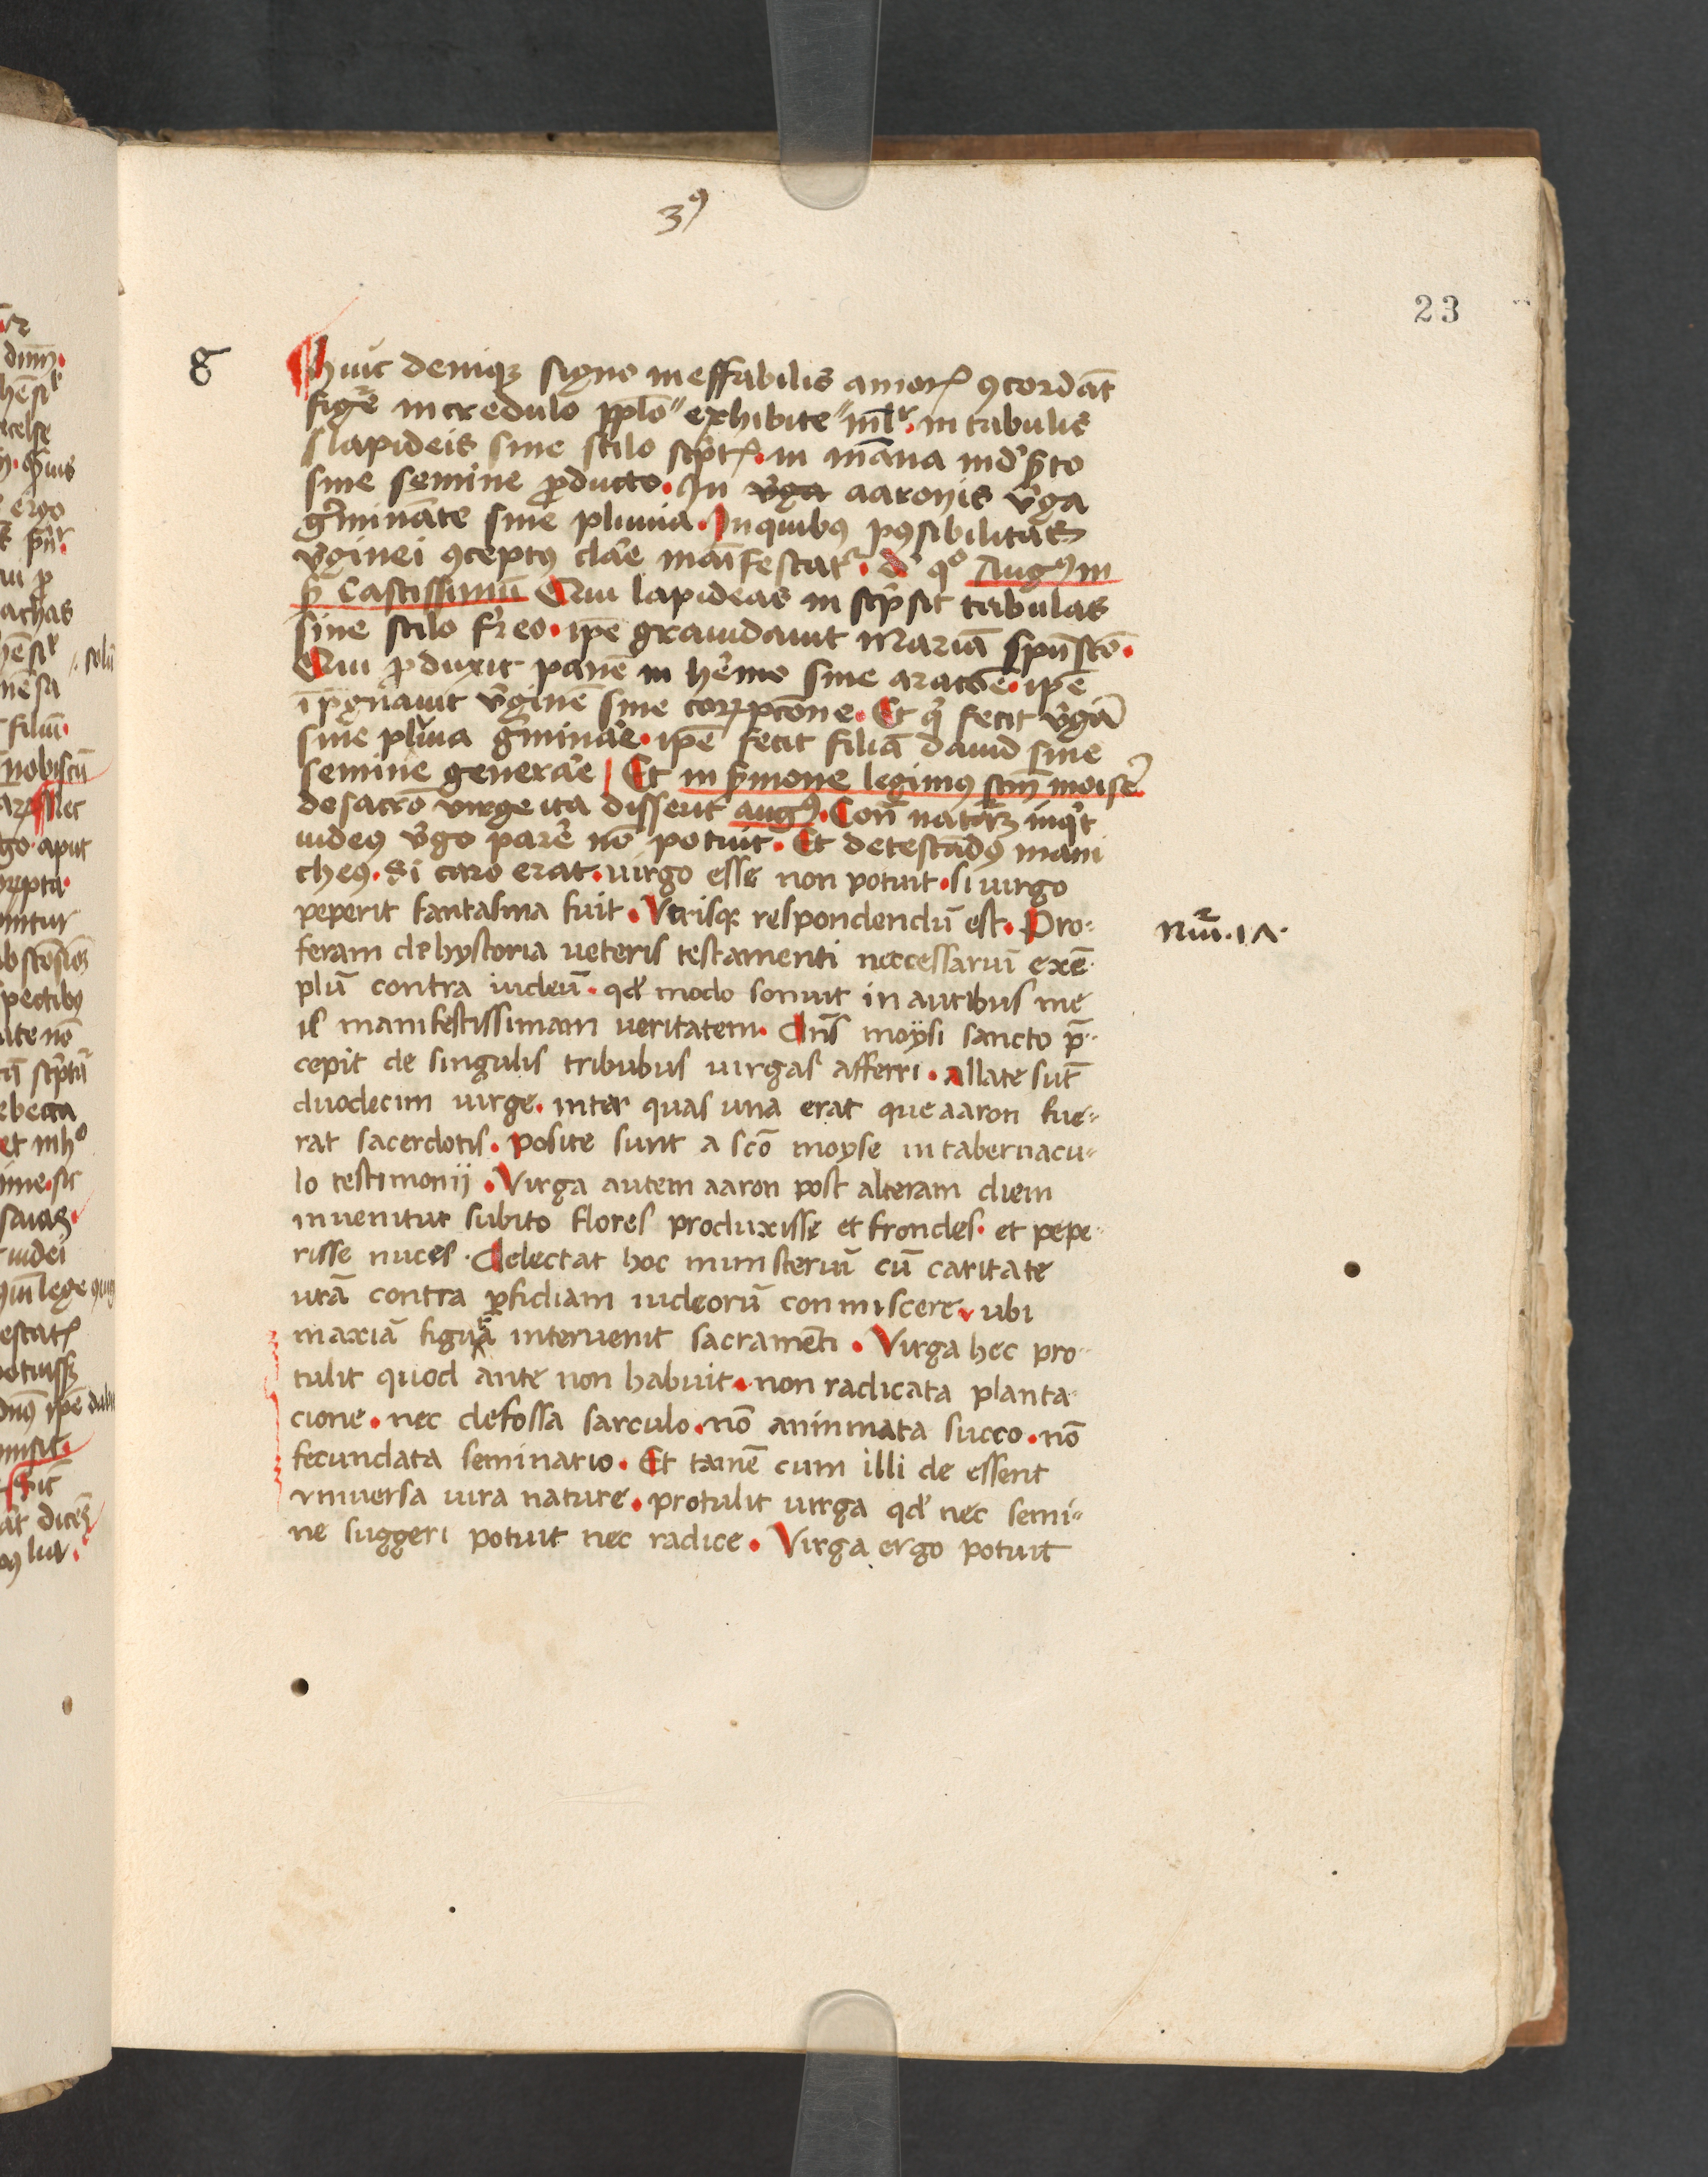 3⁹
23
g
Huic deniqꝫ signo ineffabilis amorꝭ ꝯcordāt
figᷓe incredulo pplo″ exhibite″ ml̄r. in tabulis
lapideis sine stilo scptꝭ. in māna
sine semine ꝓducto. In v̓ga aaronis v̓ga
g̓minate sine pluuia. In quibꝰ possibilitas
v̓ginei ꝯceptꝰ clare manifestat᷑. de qº Augꝰ in
Castissimū Qui lapideas inscpsit tabulas
sine stilo f̓reo. ipē grauidauit Mariā spūscō.
Qui ꝓduxit panē in hēmo sine aratōe. ipē
īpgnauit v̓ginē sine corrpcōne. Et q fecit v̓gā
sine pluuia g̓minare. ipē fecit filiā dauid sine
semine generare Et in s̓mone legimꝰ scm̄ moisē
de sacrō virge ita disserit augꝰ. Con̄ naturā inqt
iudeꝰ v̓go parē nō potuit. Et detestādꝰ mani
cheꝰ. Si caro erat. uirgo esse non potuit. si uirgo
peperit fantasma fuit. Vtrisqꝫ respondendū est. Pro=
feram de hystoria ueteris testamenti neccessariū exē-
plū contra iudeū. qd̓ modo sonuit in auribus me
is manifestissimam ueritatem. Dn̄s moÿsi sancto p̄-
cepit de singulis tribubus uirgas afferri. allate sūt
duodecim uirge. inter quas una erat que aaron fue=
rat sacerdotis. posite sunt a scō moyse in tabernacu=
lo testimonij. Virga autem aaron post alteram diem
inuenitur subito flores produxisse et frondes. et pepe-
risse nuces. Delectat hoc ministeriū cū caritate
urā contra ꝑfidiam iudeorū conmiscere. ubi
maxiā figurā interuenit sacramēti. Virga hec pro-
tulit quod ante non habuit. non radicata planta-
cione. nec defossa sarculo. nō aninmata succo. nō
fecundata seminario. Et tamē cum illi de essent
vniuersa iura nature. protulit uirga qd̓ nec semi=
ne suggeri potuit nec radice. Virga ergo potuit
Nūi. 1Λ.